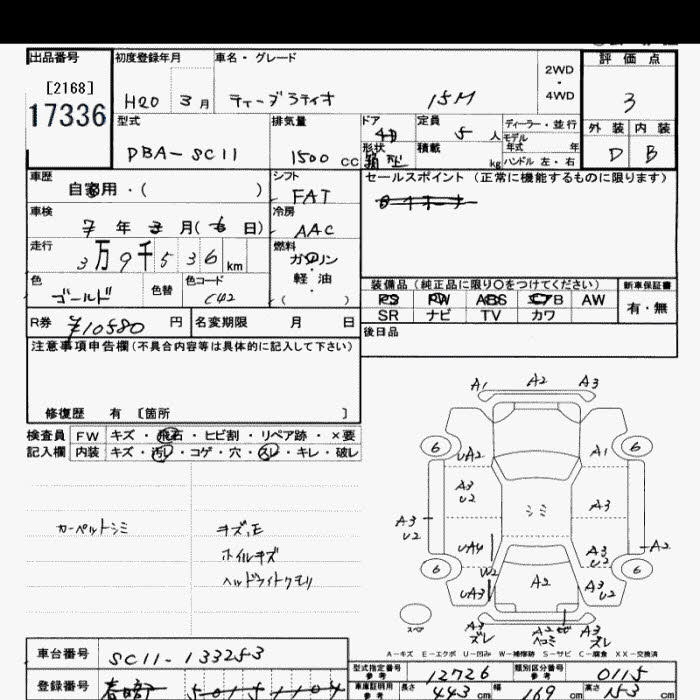 出品番号 初度登録年月 車名・グレード 2WD・4WD 評価点
[2168]
17336
H20 3月 ティーダラティオ 15M 3
型式 排気量 ドア 定員 ディーラー・並行 外装 内装
DBA-SC11 1500 cc 4D 5人 モデル年式 年 D B
形状 箱型 積載 kg ハンドル 左・右
車歴 シフト セールスポイント(正常に機能するものに限ります)
自家用・( ) FAT
車検 冷房
7年 月(6日) AAC
走行 燃料
3万9千536km ガソリン・軽油・( )
色 色替 色コード 装備品(純正品に限り○をつけてください) 新車保証書
ゴールド C42 PS PW ABS エアB AW 有・無
SR ナビ TV カワ
R券 ¥10580円 名変期限 月 日 後日品
注意事項申告欄(不具合内容等は具体的に記入して下さい)
修復歴 有 〔箇所 〕
検査員 FW キズ・飛石・ヒビ割・リペア跡・×要
記入欄 内装 キズ・汚レ・コゲ・穴・スレ・キレ・破レ
カーペットシミ
ホイルキズ
ヘッドライトクモリ
A1 A2 A3
6 UA2 A1 6
A3 U2 シミ A3
A3 U2 A2
UA4 A3 U2
6 W2 A2 6
UA3 A3 U2
スペア
A3 ズレ A2 ヘコミ A3 ズレ
A-キズ E-エクボ U-凹み W-補修跡 S-サビ C-腐食 XX-交換済
車台番号 SC11-133253
型式指定番号 参考 12726 類別区分番号 参考 0115
登録番号 春日部 501 5 1104
車庫証明用 参考 長さ 443cm 幅 169cm 高さ 153cm